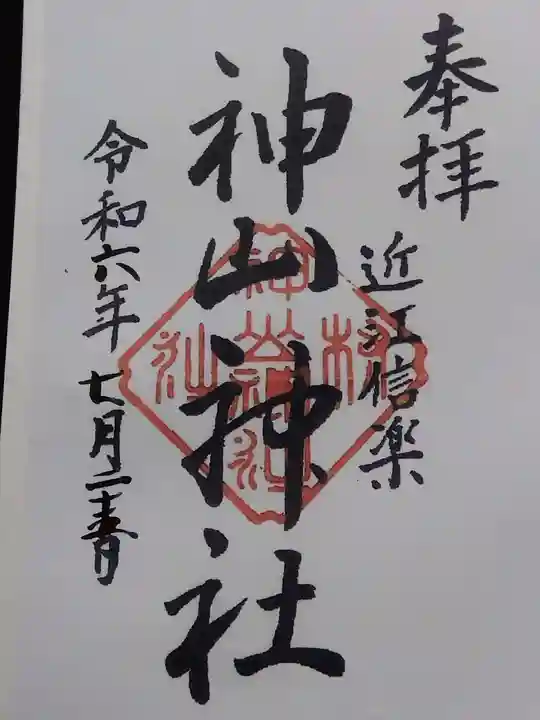 奉拝
近江信楽
神山神社
令和六年七月二十